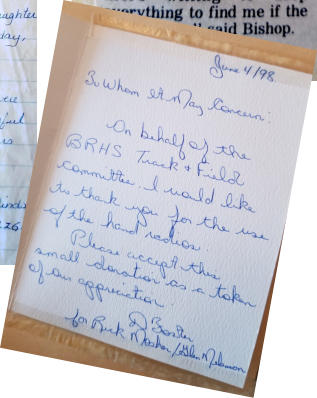 everything to find me if the
said Bishop.
aughter
day,
June 4/98
To Whom It May Concern:
On behalf of the
BRHS Track & Field
committee, I would like
to thank you for the use
of the hand radios.
Please accept this
small donation as a token
of our appreciation.
D Foster
for Rick Mosher/Glen